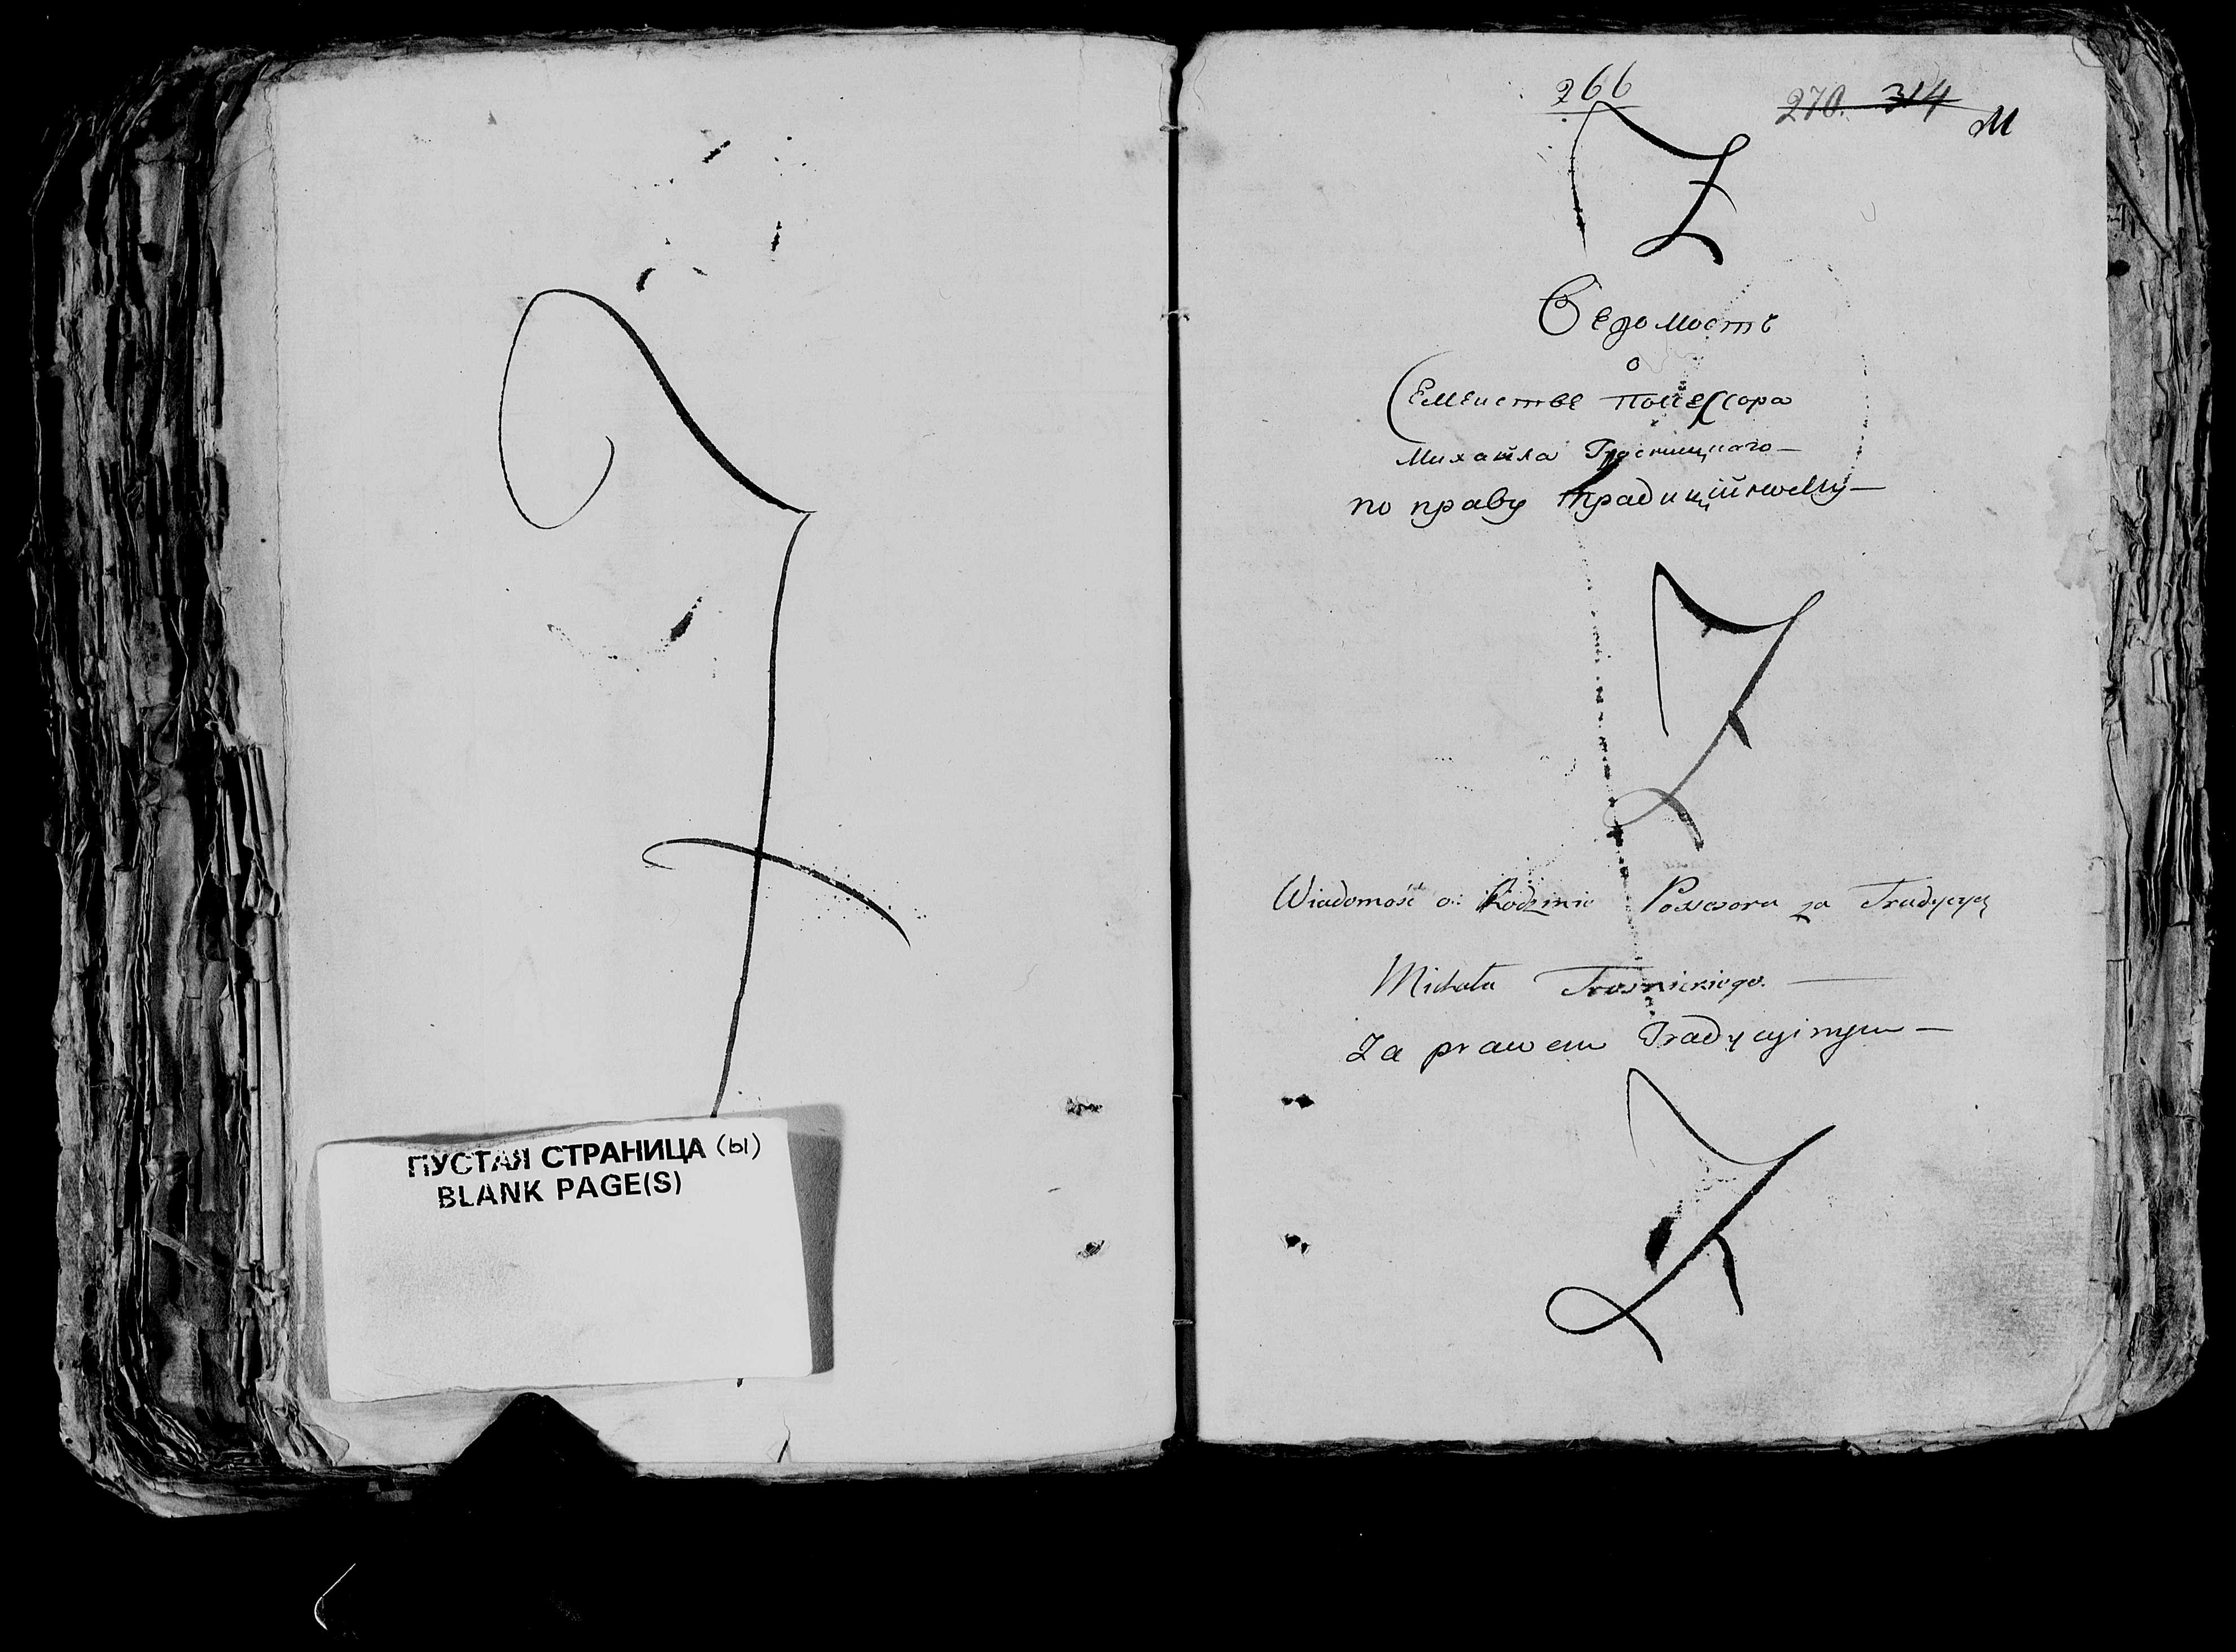 ПУСТАЯ СТРАНИЦА (Ы)
BLANK PAGE(S)
266
270. 314
М
Ведомость
о
Семеистве Посессора
Михайла
по праву традицийному—
Wiadomość o: Rodzinie Possesora za Tradycyą
Michała Trosnickiego.
Za prawem Tradycyinym—